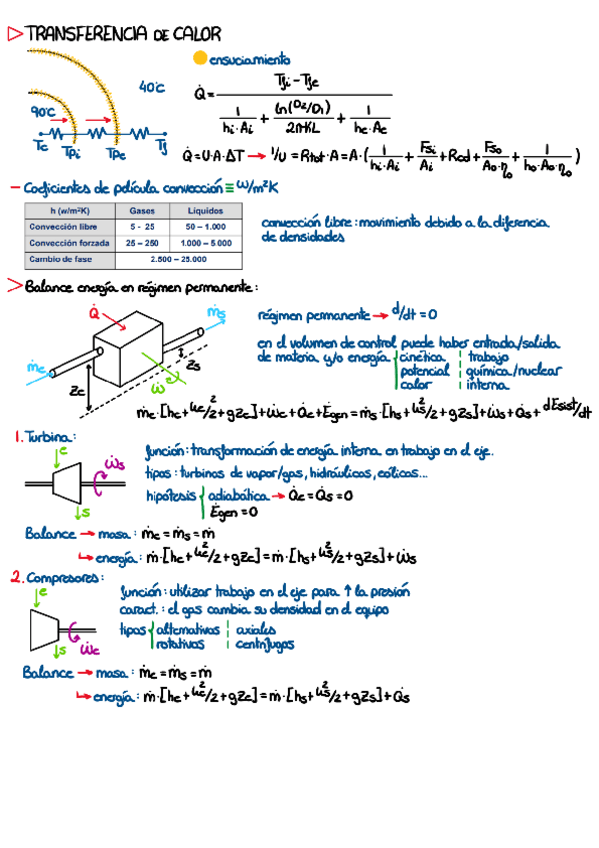 ▷ TRANSFERENCIA DE CALOR
ensuciamiento
40°C
90°C
Te Tpi Tpe Tf
Q̇ = (Tfi - Tfe) / (1/(hi·Ai) + ln(D2/D1)/(2πKL) + 1/(he·Ae))
Q̇ = U·A·ΔT → 1/U = Rtot·A = A·(1/(hi·Ai) + Fsi/Ai + Rcd + Fso/(Ao·ηo) + 1/(ho·Ao·ηo))
- Coeficientes de película convección ≡ W/m²K
h (w/m²K) Gases Líquidos
Convección libre 5 - 25 50 – 1.000
Convección forzada 25 – 250 1.000 – 5.000
Cambio de fase 2.500 – 25.000
convección libre: movimiento debido a la diferencia
de densidades
▷ Balance energía en régimen permanente:
Q̇ ṁs
ṁe Ze Zs Ẇ
régimen permanente → d/dt = 0
en el volumen de control puede haber entrada/salida
de materia y/o energía cinética trabajo
potencial química/nuclear
calor interna
ṁe·[he + ue²/2 + gZe] + Ẇe + Q̇e + Ėgen = ṁs·[hs + us²/2 + gZs] + Ẇs + Q̇s + dEsist/dt
1. Turbina:
e Ẇs s
función: transformación de energía interna en trabajo en el eje.
tipos: turbinas de vapor/gas, hidráulicas, eólicas...
hipótesis adiabática → Q̇e = Q̇s = 0
Ėgen = 0
Balance → masa: ṁe = ṁs = ṁ
↳ energía: ṁ·[he + ue²/2 + gZe] = ṁ·[hs + us²/2 + gZs] + Ẇs
2. Compresores:
e Ẇe s
función: utilizar trabajo en el eje para ↑ la presión
caract.: el gas cambia su densidad en el equipo
tipos alternativos axiales
rotativos centrífugos
Balance → masa: ṁe = ṁs = ṁ
↳ energía: ṁ·[he + ue²/2 + gZe] = ṁ·[hs + us²/2 + gZs] + Q̇s